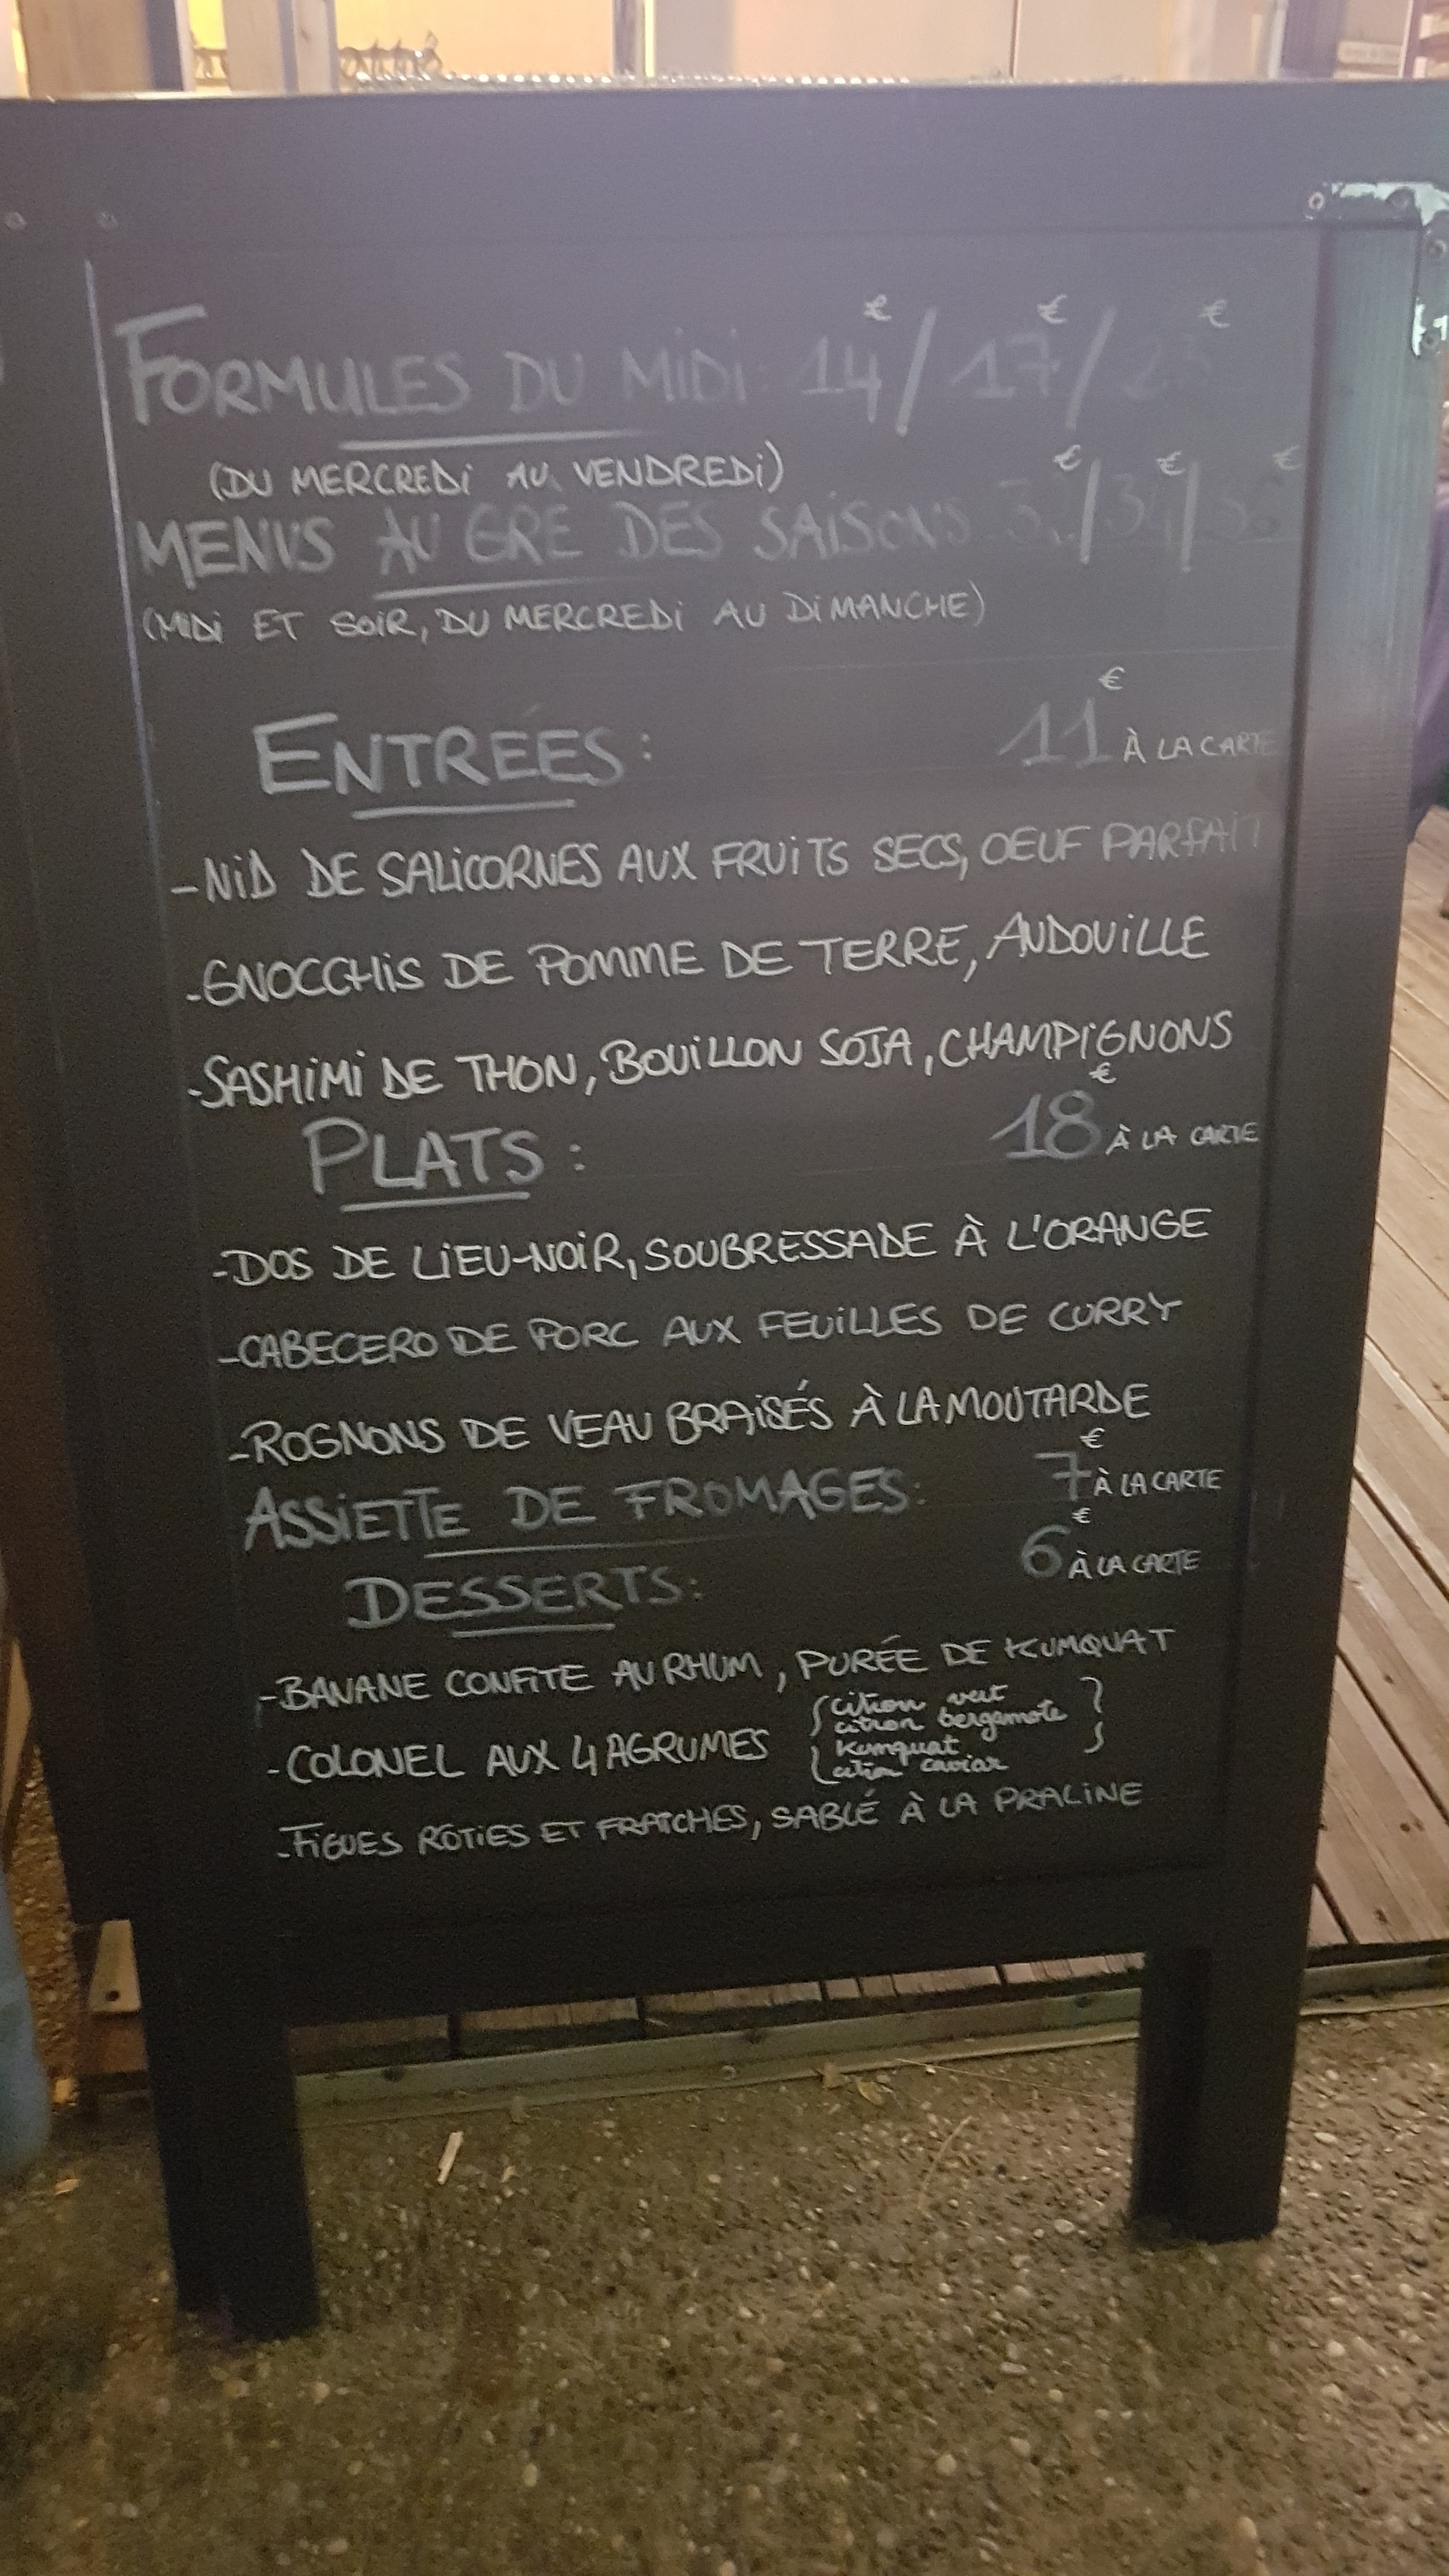 FORMULES DU MIDI: 14€/17€/ €
(DU MERCREDI AU VENDREDI)
MENUS AU GRE DES SAISONS € / € / €
(MIDI ET SOIR, DU MERCREDI AU DIMANCHE)
ENTRÉES: 11€ À LA CARTE
-NID DE SALICORNES AUX FRUITS SECS, OEUF PARFAIT
-GNOCCHIS DE POMME DE TERRE, ANDOUILLE
-SASHIMI DE THON, BOUILLON SOJA, CHAMPIGNONS
PLATS: 18€ À LA CARTE
-DOS DE LIEU-NOIR, SOUBRESSADE À L'ORANGE
-CABECERO DE PORC AUX FEUILLES DE CURRY
-ROGNONS DE VEAU BRAISÉS À LA MOUTARDE
ASSIETTE DE FROMAGES: 7€ À LA CARTE
DESSERTS: 6€ À LA CARTE
-BANANE CONFITE AU RHUM, PURÉE DE KUMQUAT
-COLONEL AUX 4 AGRUMES
citron vert
citron bergamote
Kumquat
citron caviar
-FIGUES ROTIES ET FRAICHES, SABLÉ À LA PRALINE